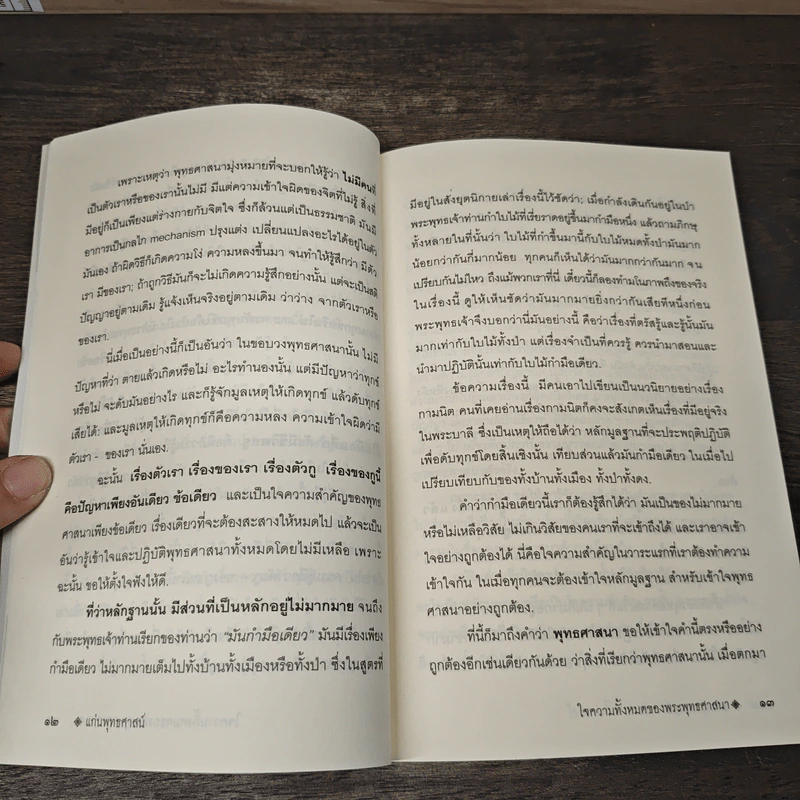 เพราะเหตุว่า พุทธศาสนามุ่งหมายที่จะบอกให้รู้ว่า ไม่มีคนที่
เป็นตัวเราหรือของเรานั้นไม่มี มีแต่ความเข้าใจผิดของจิตที่ไม่รู้ สิ่งที่
มีอยู่ก็เป็นเพียงแต่ร่างกายกับจิตใจ ซึ่งก็ล้วนแต่เป็นธรรมชาติ มันมี
อาการเป็นกลไก mechanism ปรุงแต่ง เปลี่ยนแปลงอะไรได้อยู่ในตัว
มันเอง ถ้าผิดวิธีก็เกิดความโง่ ความหลงขึ้นมา จนทำให้รู้สึกว่า มีตัว
เรา มีของเรา; ถ้าถูกวิธีมันก็จะไม่เกิดความรู้สึกอย่างนั้น แต่จะเป็นสติ
ปัญญาอยู่ตามเดิม รู้แจ้งเห็นจริงอยู่ตามเดิม ว่าว่าง จากตัวเราหรือ
ของเรา.
นี่เมื่อเป็นอย่างนี้ก็เป็นอันว่า ในขอบวงพุทธศาสนานั้น ไม่มี
ปัญหาที่ว่า ตายแล้วเกิดหรือไม่ อะไรทำนองนั้น แต่มีปัญหาว่าทุกข์
หรือไม่ จะดับมันอย่างไร และก็รู้จักมูลเหตุให้เกิดทุกข์ แล้วดับทุกข์
เสียได้: และมูลเหตุให้เกิดทุกข์ก็คือความหลง ความเข้าใจผิดว่ามี
ตัวเรา - ของเรา นั่นเอง.
ฉะนั้น เรื่องตัวเรา เรื่องของเรา เรื่องตัวกู เรื่องของกูนี้
คือปัญหาเพียงอันเดียว ข้อเดียว และเป็นใจความสำคัญของพุทธ
ศาสนาเพียงข้อเดียว เรื่องเดียวที่จะต้องสะสางให้หมดไป แล้วจะเป็น
อันว่ารู้เข้าใจและปฏิบัติพุทธศาสนาทั้งหมดโดยไม่มีเหลือ เพราะ
ฉะนั้น ขอให้ตั้งใจฟังให้ดี.
ที่ว่าหลักฐานนั้น มีส่วนที่เป็นหลักอยู่ไม่มากมาย จนถึง
กับพระพุทธเจ้าท่านเรียกของท่านว่า “มันกำมือเดียว” มันมีเรื่องเพียง
กำมือเดียว ไม่มากมายเต็มไปทั้งบ้านทั้งเมืองหรือทั้งป่า ซึ่งในสูตรที่
๑๒ ◈ แก่นพุทธศาสน์
มีอยู่ในสังยุตนิกายเล่าเรื่องนี้ไว้ชัดว่า; เมื่อกำลังเดินกันอยู่ในป่า
พระพุทธเจ้าท่านกำใบไม้ที่เรี่ยราดอยู่ขึ้นมากำมือหนึ่ง แล้วถามภิกษุ
ทั้งหลายในที่นั้นว่า ใบไม้ที่กำขึ้นมานี้กับใบไม้หมดทั้งป่ามันมาก
น้อยกว่ากันกี่มากน้อย ทุกคนก็เห็นได้ว่ามันมากกว่ากันมาก จน
เปรียบกันไม่ไหว ถึงแม้พวกเราที่นี่ เดี๋ยวนี้ก็ลองทำมโนภาพถึงของจริง
ในเรื่องนี้ ดูให้เห็นชัดว่ามันมากมายยิ่งกว่ากันเสียทีหนึ่งก่อน
พระพุทธเจ้าจึงบอกว่านี่มันอย่างนี้ คือว่าเรื่องที่ตรัสรู้และรู้นั้นมัน
มากเท่ากับใบไม้ทั้งป่า แต่เรื่องจำเป็นที่ควรรู้ ควรนำมาสอนและ
นำมาปฏิบัตินั้นเท่ากับใบไม้กำมือเดียว.
ข้อความเรื่องนี้ มีคนเอาไปเขียนเป็นนวนิยายอย่างเรื่อง
กามนิต คนที่เคยอ่านเรื่องกามนิตก็คงจะสังเกตเห็นเรื่องที่มีอยู่จริง
ในพระบาลี ซึ่งเป็นเหตุให้ถือได้ว่า หลักมูลฐานที่จะประพฤติปฏิบัติ
เพื่อดับทุกข์โดยสิ้นเชิงนั้น เทียบส่วนแล้วมันกำมือเดียว ในเมื่อไป
เปรียบเทียบกับของทั้งบ้านทั้งเมือง ทั้งป่าทั้งดง.
คำว่ากำมือเดียวนี้เราก็ต้องรู้สึกได้ว่า มันเป็นของไม่มากมาย
หรือไม่เหลือวิสัย ไม่เกินวิสัยของคนเราที่จะเข้าถึงได้ และเราอาจเข้า
ใจอย่างถูกต้องได้ นี่คือใจความสำคัญในวาระแรกที่เราต้องทำความ
เข้าใจกัน ในเมื่อทุกคนจะต้องเข้าใจหลักมูลฐาน สำหรับเข้าใจพุทธ
ศาสนาอย่างถูกต้อง.
ที่นี้ก็มาถึงคำว่า พุทธศาสนา ขอให้เข้าใจคำนี้ตรงหรืออย่าง
ถูกต้องอีกเช่นเดียวกันด้วย ว่าสิ่งที่เรียกว่าพุทธศาสนานั้น เมื่อตกมา
ใจความทั้งหมดของพระพุทธศาสนา ◈ ๑๓